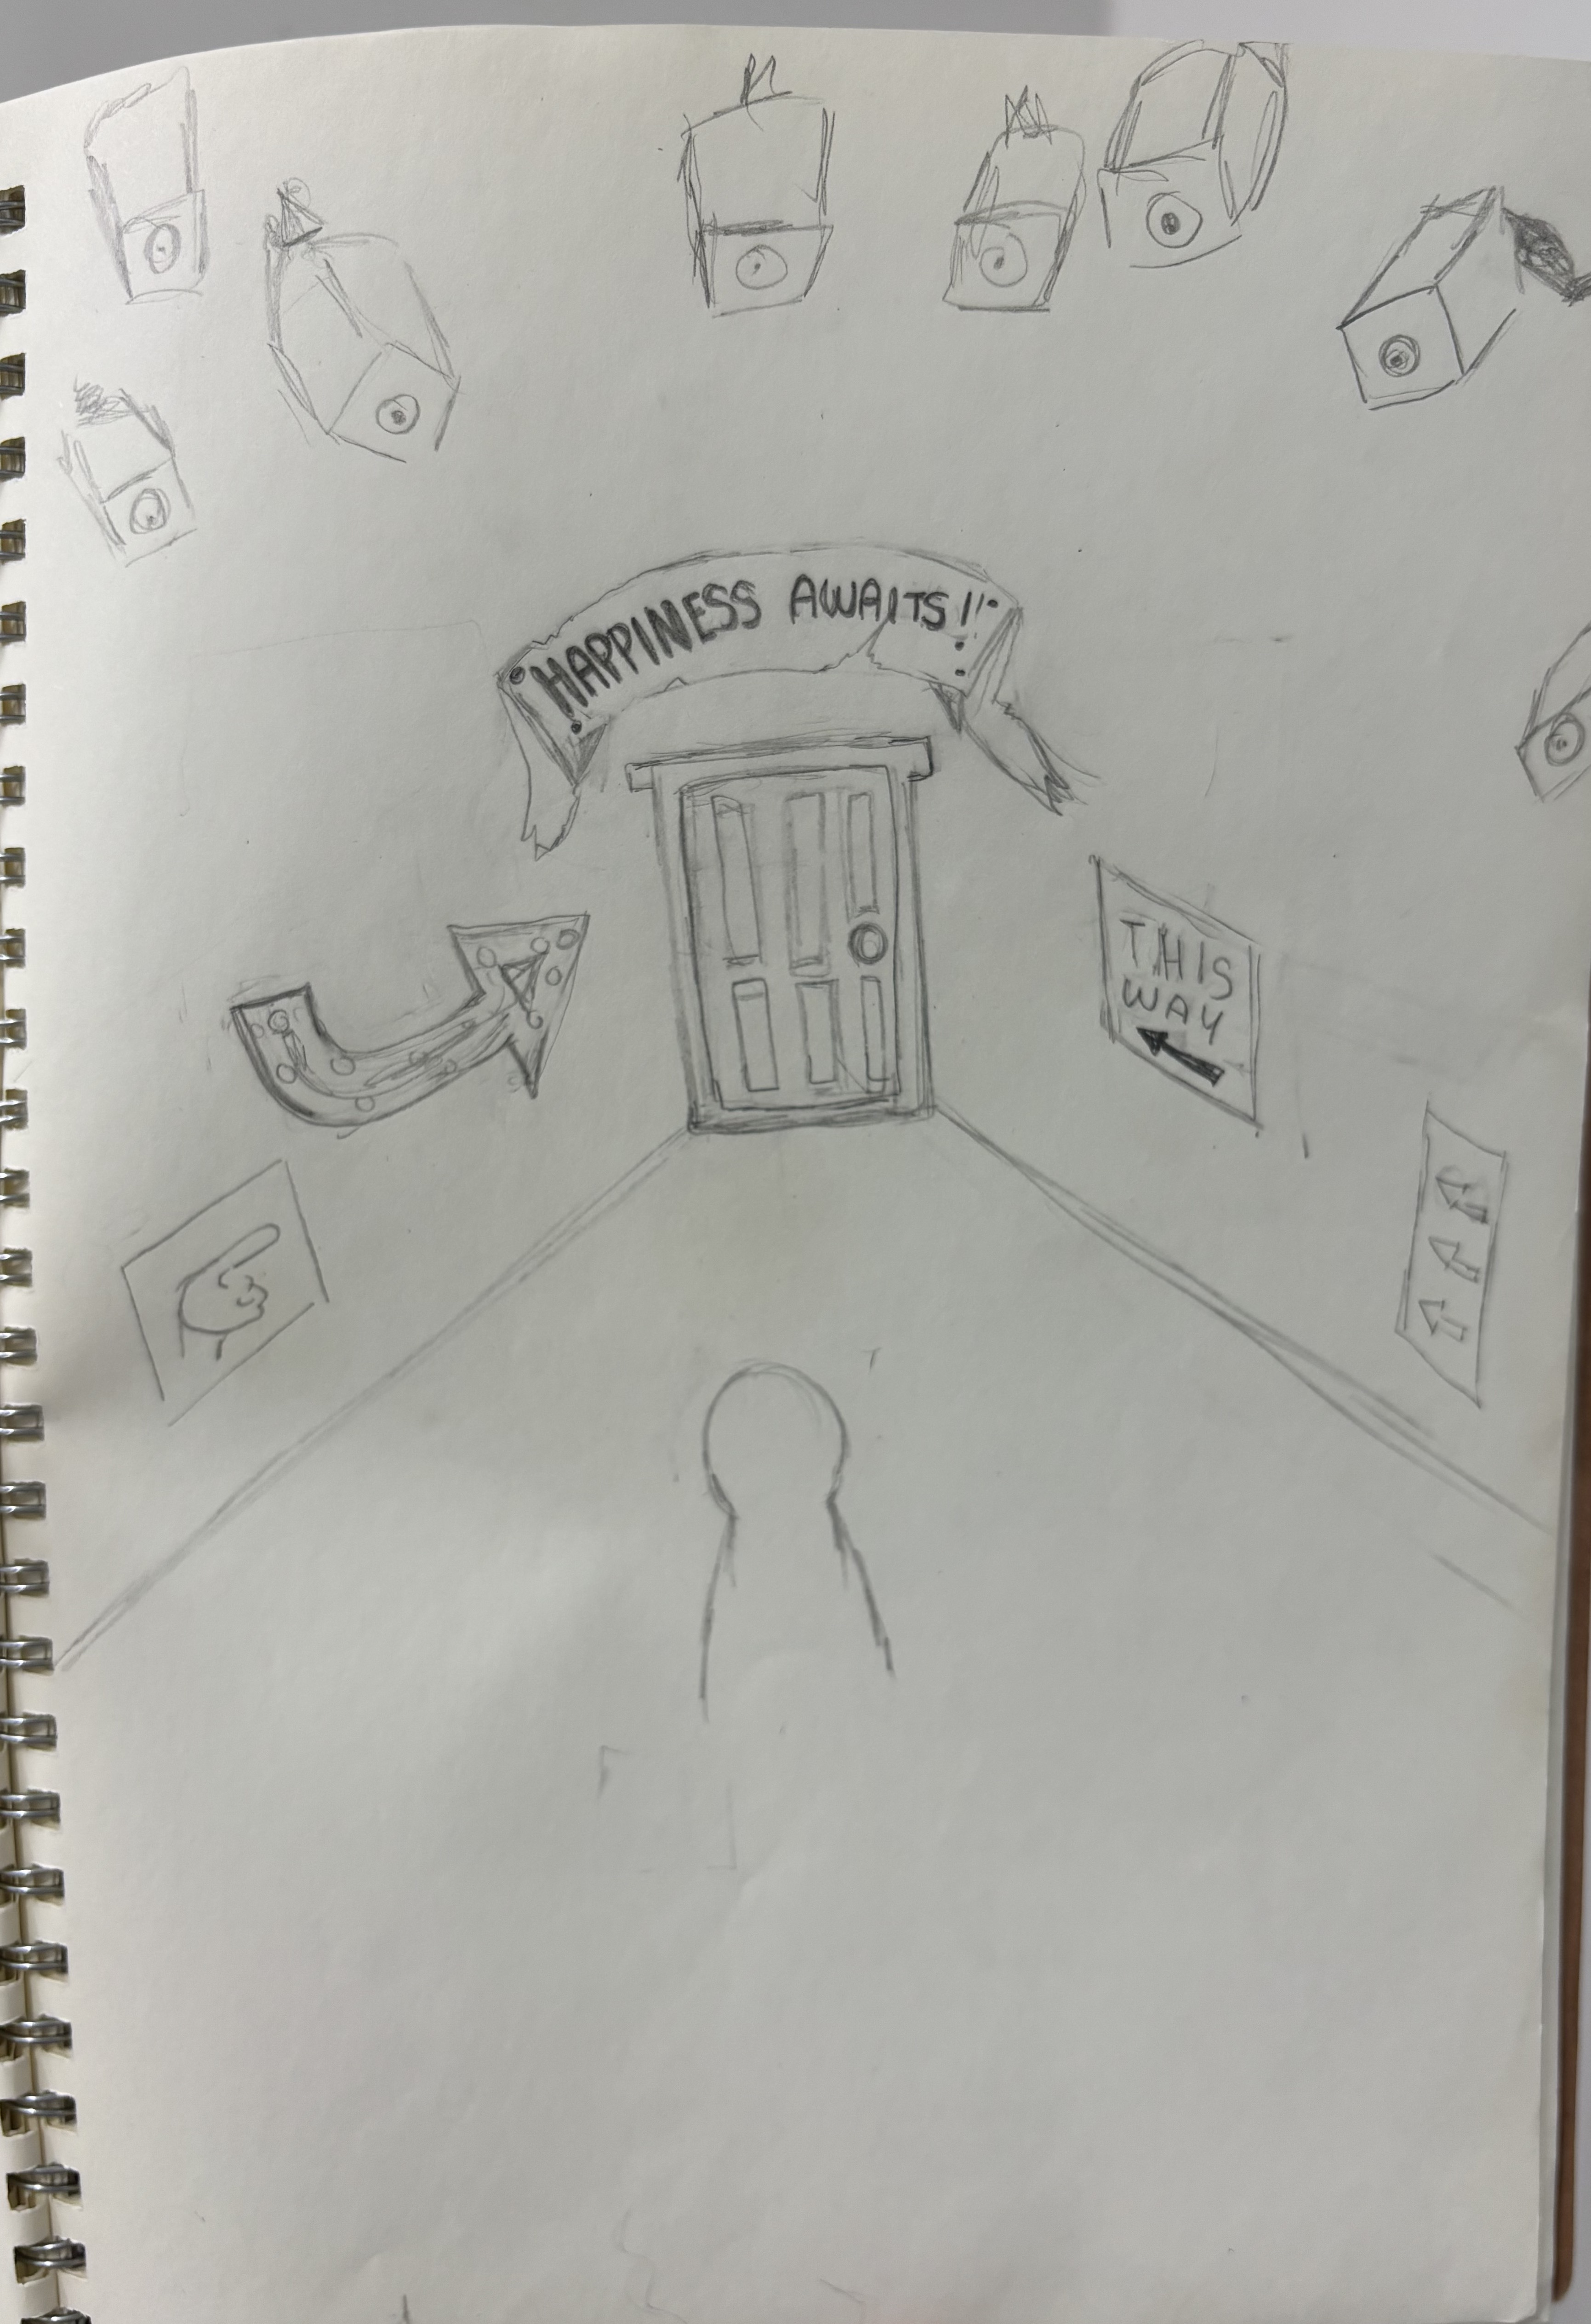 ¡HAPPINESS AWAITS!!
THIS
WAY